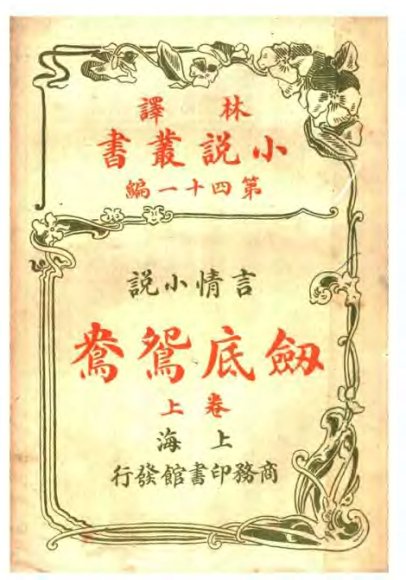 林譯
小說叢書
第四十一編
言情小說
劒底鴛鴦
卷上
上海
商務印書館發行